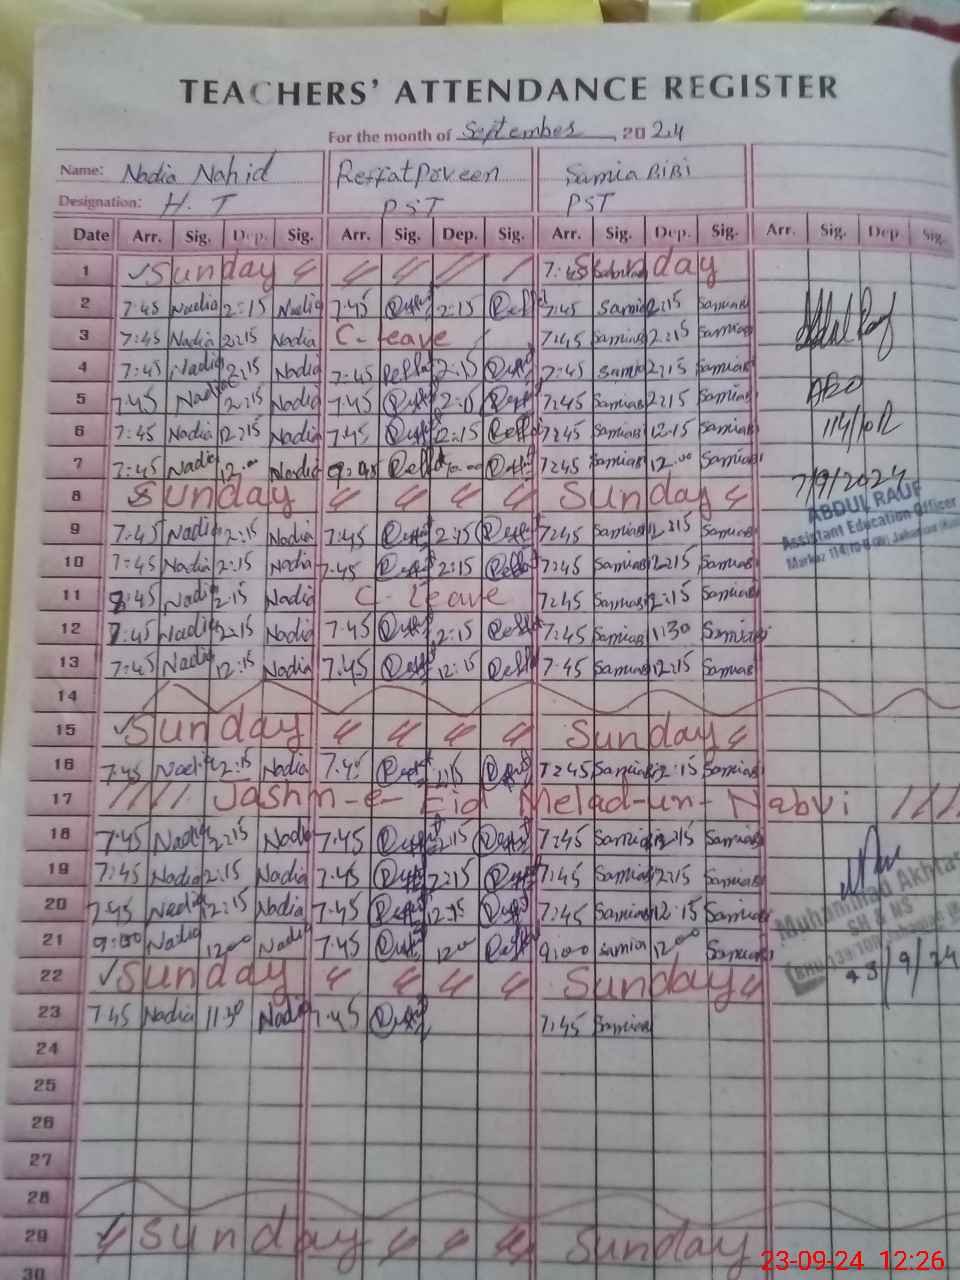 TEACHERS' ATTENDANCE REGISTER
For the month of September 2024
Name: Nadia Nahid Reffat Parveen Samia BiBi
Designation: H. T PST PST
Date Arr. Sig. Dep. Sig. Arr. Sig. Dep. Sig. Arr. Sig. Dep. Sig. Arr. Sig. Dep. Sig.
1 Sunday 7:45 Sunday
2 7:45 Nadia 2:15 Nadia 7:45 2:15 7:45 Samia 2:15 Samia
3 7:45 Nadia 2:15 Nadia C-leave 7:45 Samia 2:15 Samia
4 7:45 Nadia 2:15 Nadia 7:45 Reffat 2:15 7:45 Samia 2:15 Samia
5 7:45 Nadia 2:15 Nadia 7:45 2:15 7:45 Samia 2:15 Samia
6 7:45 Nadia 12:15 Nadia 7:45 12:15 7:45 Samia 12:15 Samia
7 7:45 Nadia 12:00 Nadia 7:45 Samia 12:00 Samia
7/9/2024
8 Sunday Sunday
ABDUL RAUF
Assistant Education Officer
9 7:45 Nadia 2:15 Nadia 7:45 2:15 7:45 Samia 2:15 Samia
10 7:45 Nadia 2:15 Nadia 7:45 2:15 7:45 Samia 2:15 Samia
11 7:45 Nadia 2:15 Nadia C-Leave 7:45 Samia 2:15 Samia
12 7:45 Nadia 2:15 Nadia 7:45 2:15 7:45 Samia 11:30 Samia
13 7:45 Nadia 12:15 Nadia 7:45 12:15 7:45 Samia 12:15 Samia
14
15 Sunday Sunday
16 7:45 Nadia 2:15 Nadia 7:45 2:15 7:45 Samia 2:15 Samia
17 Jashm-e-Eid Melad-un-Nabvi
18 7:45 Nadia 2:15 Nadia 7:45 2:15 7:45 Samia 2:15 Samia
19 7:45 Nadia 2:15 Nadia 7:45 2:15 7:45 Samia 2:15 Samia
20 7:45 Nadia 12:15 Nadia 7:45 12:15 7:45 Samia 12:15 Samia
21 9:00 Nadia 12:00 Nadia 7:45 12:00 9:00 Samia 12:00 Samia
Muhammad Akhtar
22 Sunday Sunday
23 7:45 Nadia 11:30 Nadia 7:45 7:45 Samia
24
25
26
27
28
29 Sunday Sunday
30
23-09-24 12:26